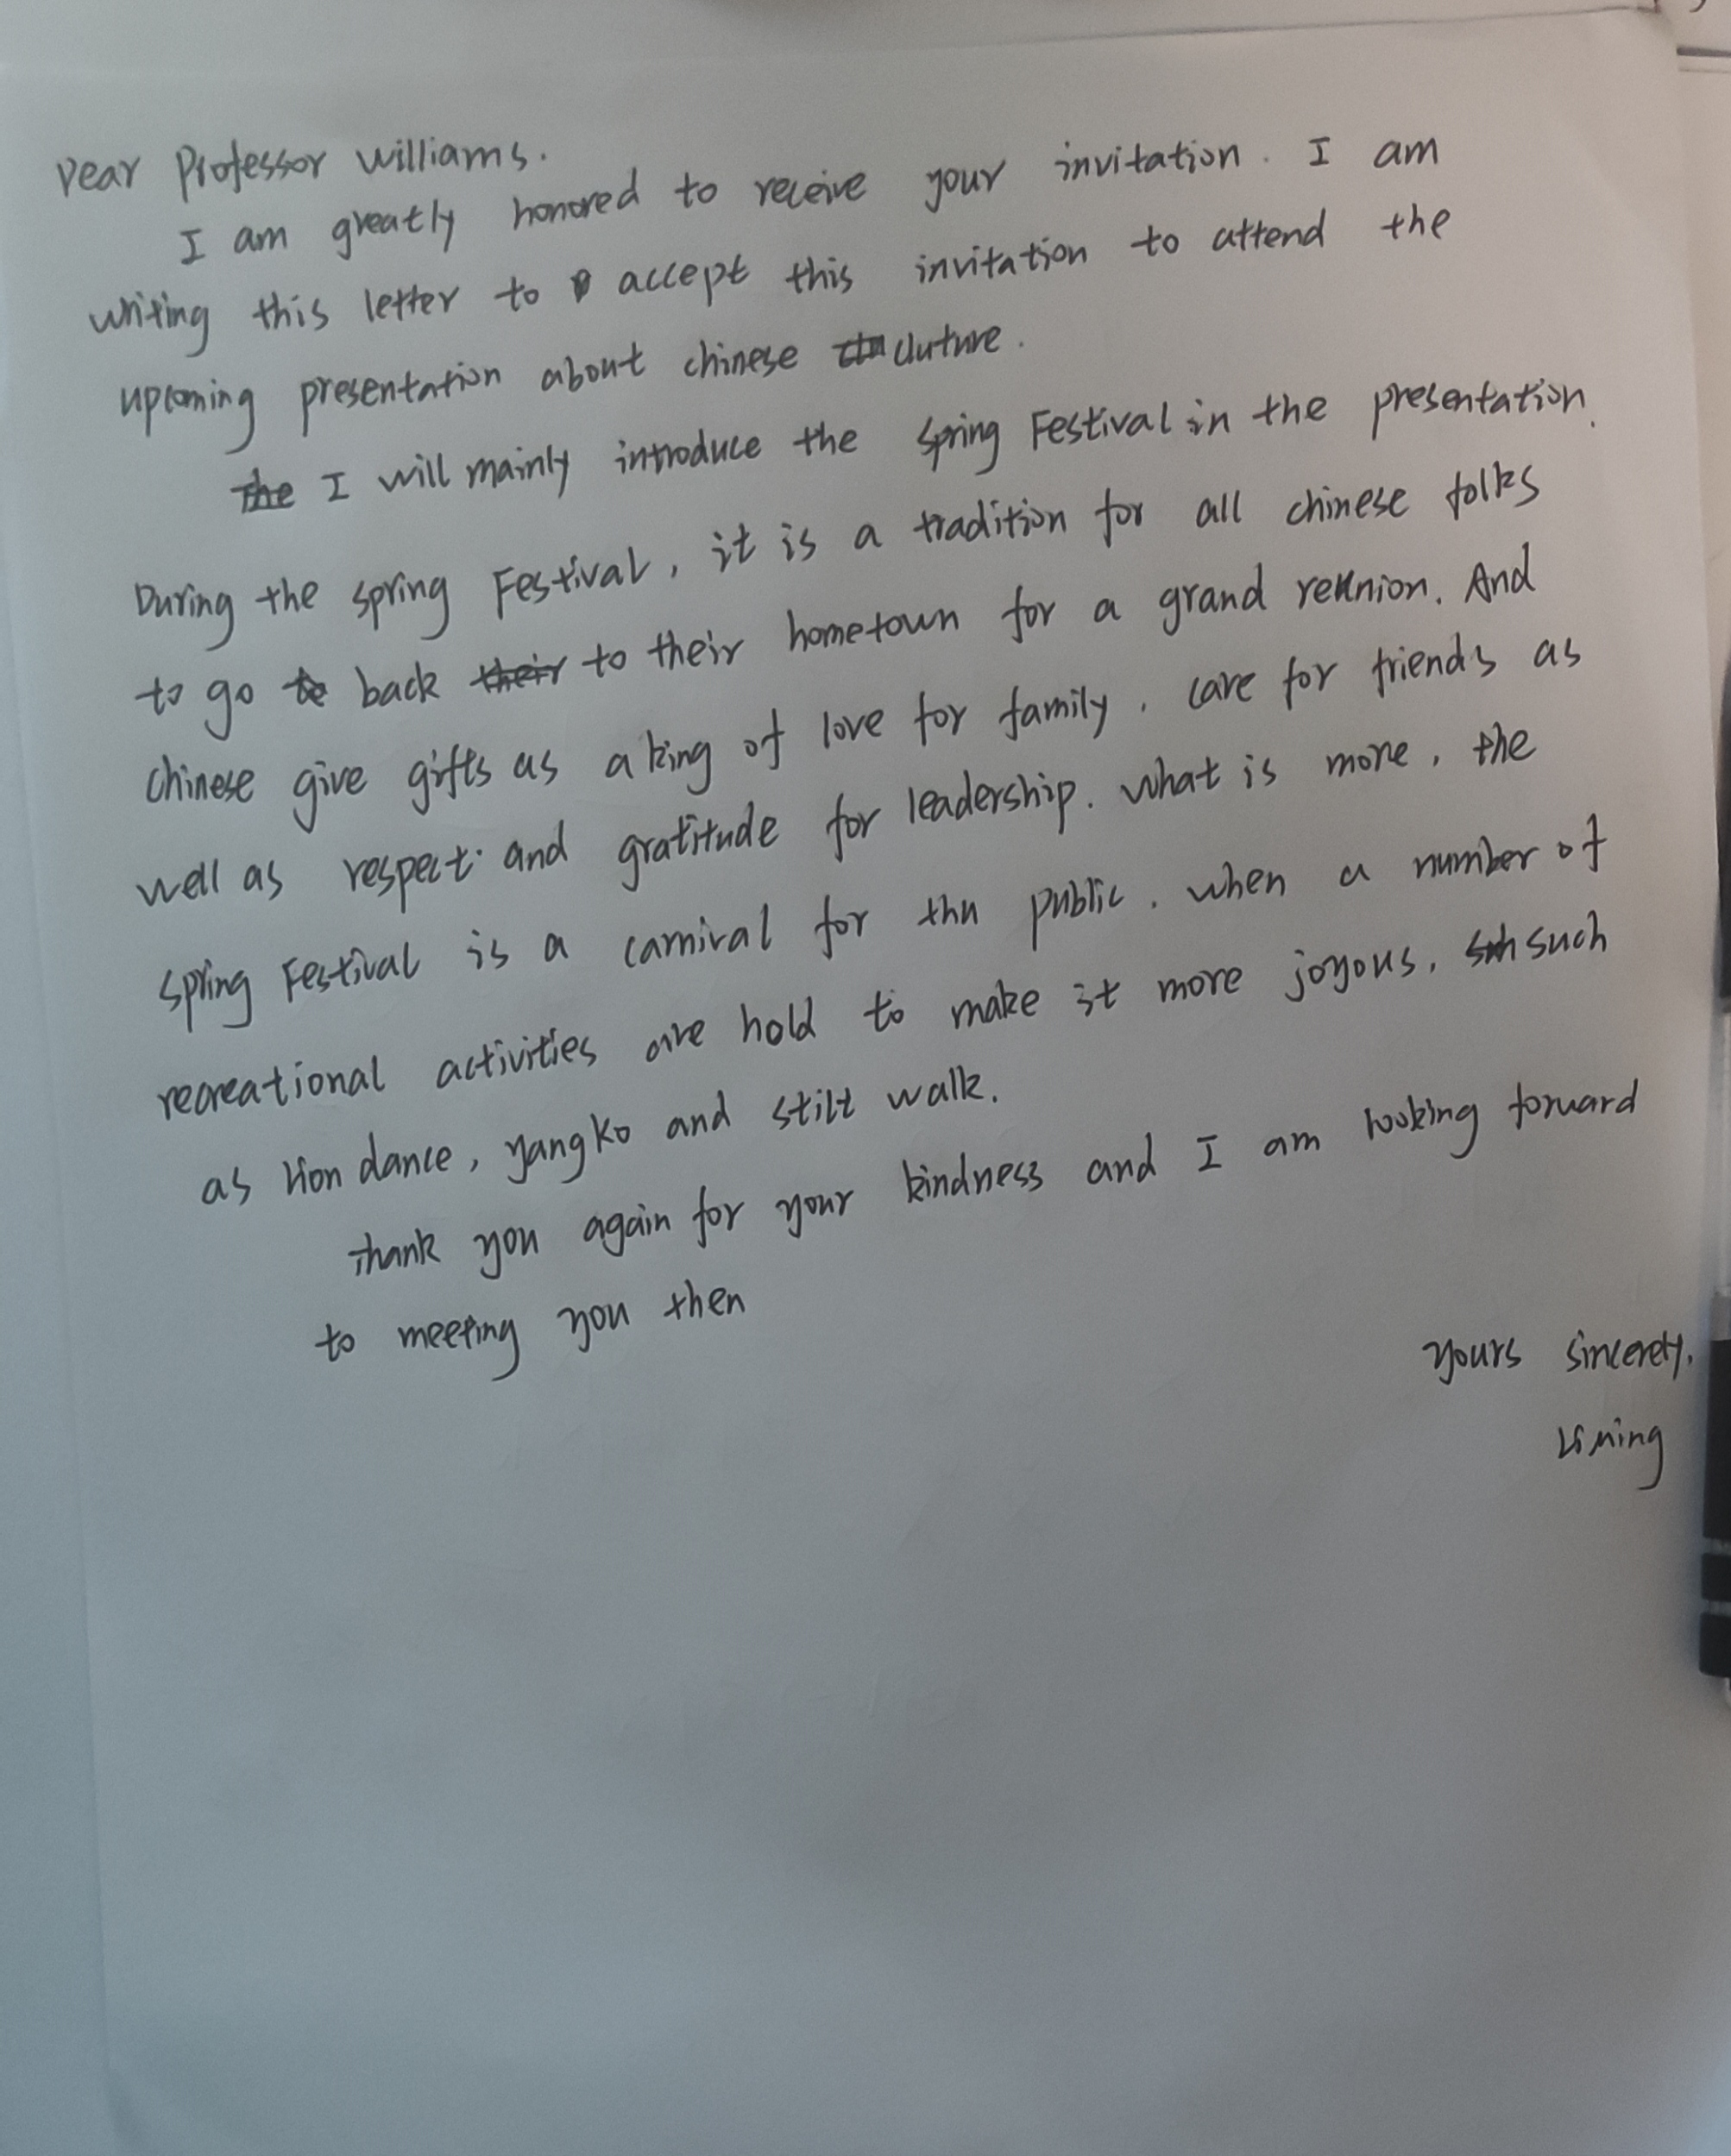 Dear Professor Williams.
I am greatly honored to receive your invitation. I am
writing this letter to accept this invitation to attend the
upcoming presentation about chinese cluture.
I will mainly introduce the Spring Festival in the presentation.
During the spring Festival, it is a tradition for all chinese folks
to go back to their hometown for a grand reunion. And
Chinese give gifts as a king of love for family, care for friends as
well as respect and gratitude for leadership. What is more, the
Spring Festival is a carnival for the public, when a number of
recreational activities are hold to make it more joyous, such
as lion dance, yangko and stilt walk.
Thank you again for your kindness and I am looking forward
to meeting you then
Yours sincerely,
Li Ming